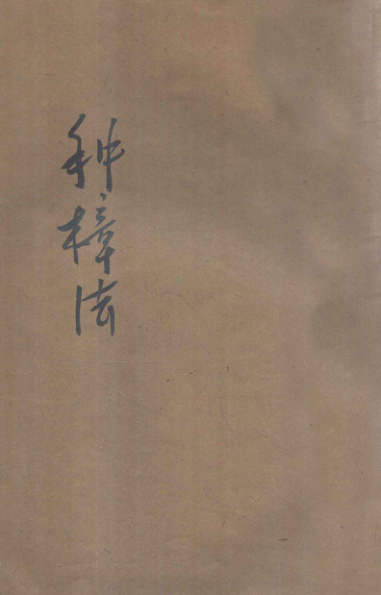 种樟法